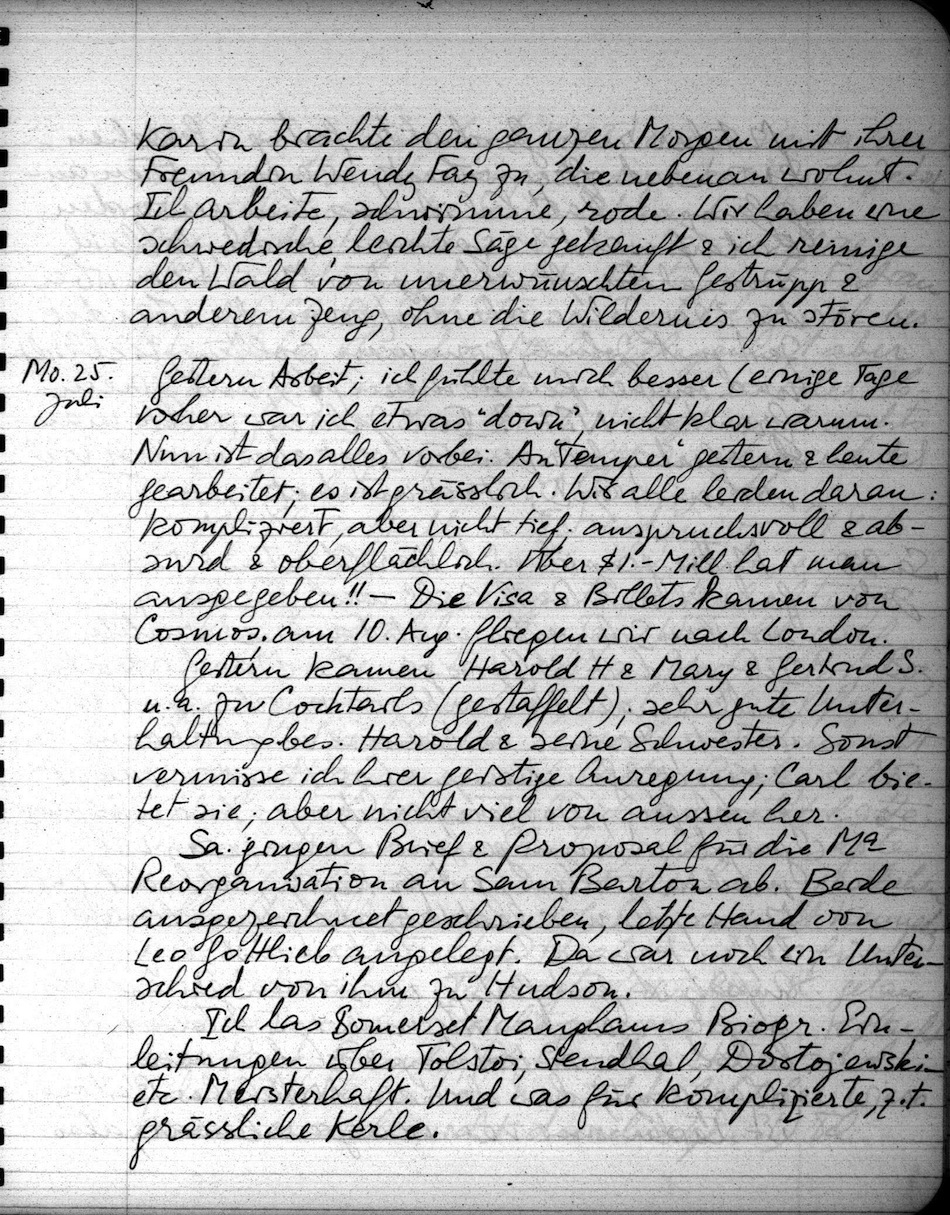 Karin brachte den ganzen Morgen mit ihrer
Freundin Wendy Fay zu, die nebenan wohnt.
Ich arbeite, schwimme, rode. Wir haben eine
schwedische, leichte Säge gekauft & ich reinige
den Wald von unerwünschtem Gestrüpp &
anderem Zeug, ohne die Wildernis zu stören.
Mo. 25. Juli
Gestern Arbeit; ich fühlte mich besser (einige Tage
voher war ich etwas "down", nicht klar warum.
Nun ist das alles vorbei. An "Temper" gestern & heute
gearbeitet; es ist grässlich. Wir alle leiden daran:
kompliziert, aber nicht tief; anspruchsvoll & ab-
surd & oberflächlich. Über $1.- Mill. hat man
ausgegeben!! – Die Visa & Billets kamen von
Cosmos. am 10. Aug. fliegen wir nach London.
Gestern kamen Harold H & Mary & Gertrud S.
u.a. zu Cocktails (gestaffelt); sehr gute Unter-
haltung bes. Harold & seine Schwester. Sonst
vermisse ich hier geistige Anregung; Carl bie-
tet sie; aber nicht viel von aussen her.
Sa. gingen Brief & Proposal für die
Reorganisation an Sam Barton ab. Beide
ausgezeichnet geschrieben, letzte Hand von
Leo Gottlieb angelegt. Da war noch ein Unter-
schied von ihm zu Hudson.
Ich las Somerset Maughams Biogr. Ein-
leitungen über Tolstoi, Stendhal, Dostojewski
etc. Meisterhaft. Und was für komplizierte, z.t.
grässliche Kerle.